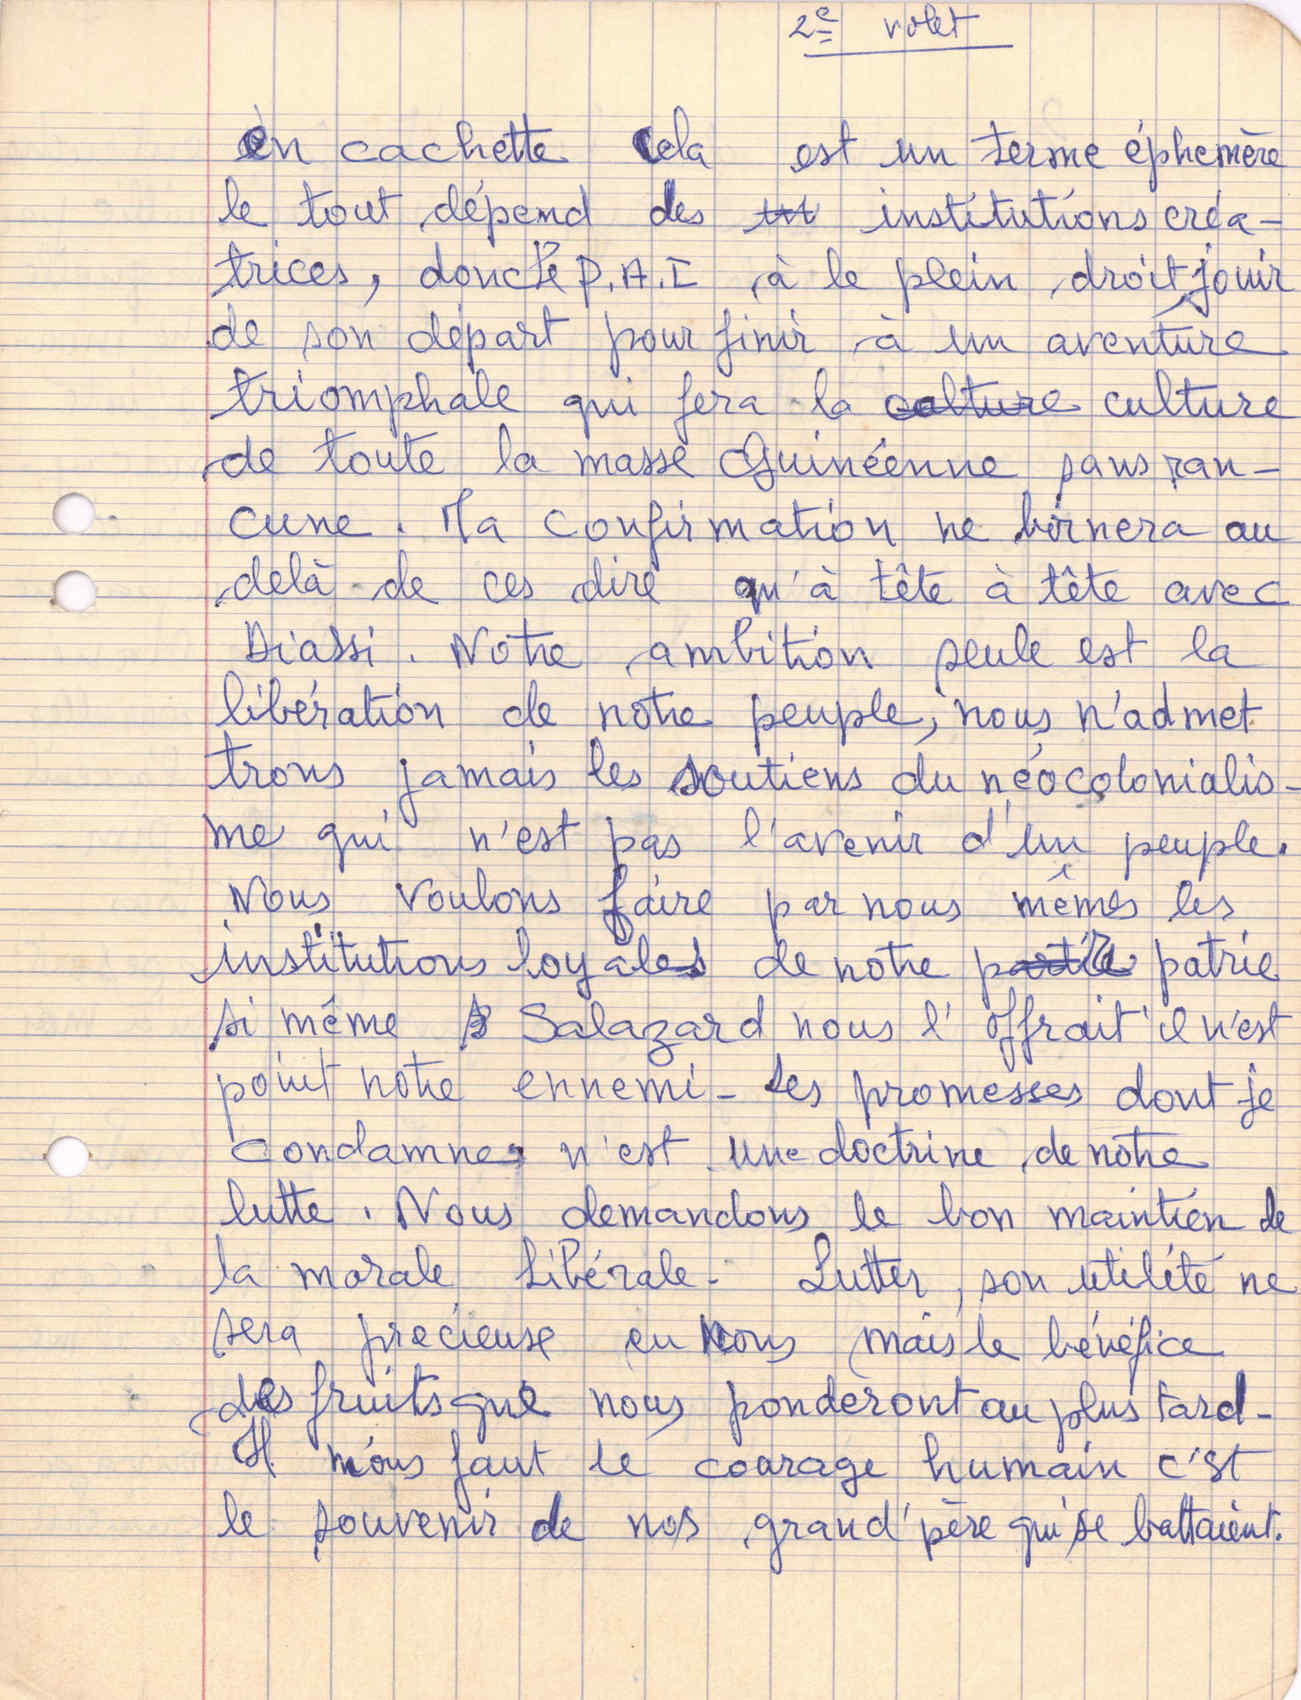 2e volet
en cachette cela est un terme éphemère
le tout dépend des institutions créa-
trices, donc le P.A.I à le plein droit jouir
de son départ pour finir à un aventure
triomphale qui fera la culture culture
de toute la masse Guinéenne sans ran-
cune. Ma confirmation ne birnera au
delà de ces dire qu'à tête à tête avec
Diassi. Notre ambition seule est la
libération de notre peuple, nous n'admet
trons jamais les soutiens du néocolonialis-
me qui n'est pas l'avenir d'un peuple.
Nous voulons faire par nous mêmes les
institutions loyales de notre patrie
si même Salazard nous l'offrait il n'est
point notre ennemi - Les promesses dont je
condamne, n'est une doctrine de notre
lutte. Nous demandons le bon maintien de
la morale libérale - Lutter, son utilété ne
sera precieuse en nous mais le bénéfice
des fruits que nous ponderont au plus tard -
Il nous faut le courage humain c'st
le souvenir de nos grand'père qui se battaient.